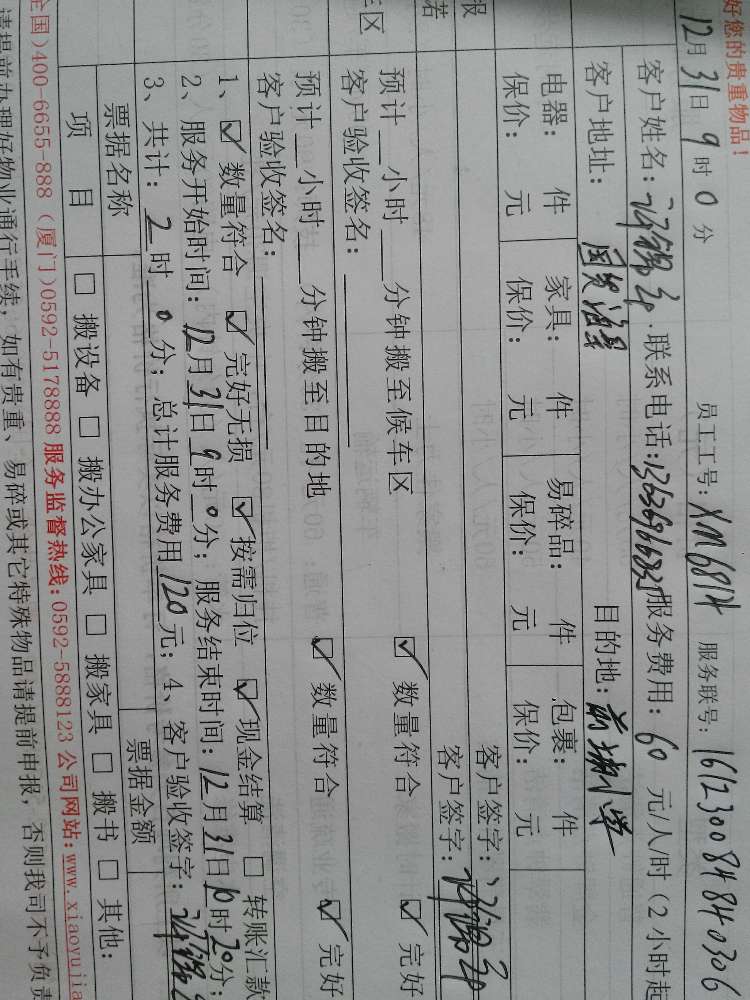 好您的贵重物品！
12月31日9时0分 员工工号：XM6814 服务联号：161230084840306
客户姓名： 联系电话：13636966825 服务费用：60 元/人/时（2小时起
客户地址：国贸 目的地：前埔小学
电器： 件 家具： 件 易碎品： 件 包裹： 件
保价： 元 保价： 元 保价： 元 保价： 元
报
客户签字：
若
客户签字：
车区
预计 小时 分钟搬至候车区 ☑ 数量符合 ☑ 完好
客户验收签名：
预计 小时 分钟搬至目的地 ☑ 数量符合 ☑ 完好
客户验收签名：
1、☑ 数量符合 ☑ 完好无损 ☑ 按需归位 ☑ 现金结算 □ 转账汇款
2、服务开始时间：12月31日9时0分；服务结束时间：12月31日10时30分；
3、共计：2时0分；总计服务费用120元；4、客户验收签字：
票据名称 票据金额
项 目 □ 搬设备 □ 搬办公家具 □ 搬家具 □ 搬书 □ 其他：
全国)400-6655-888（厦门)0592-5178888 服务监督热线：0592-5888123 公司网站：www.xiaoyujia
请提前办理好物业通行手续，如有贵重、易碎或其它特殊物品请提前申报，否则我司不予负责